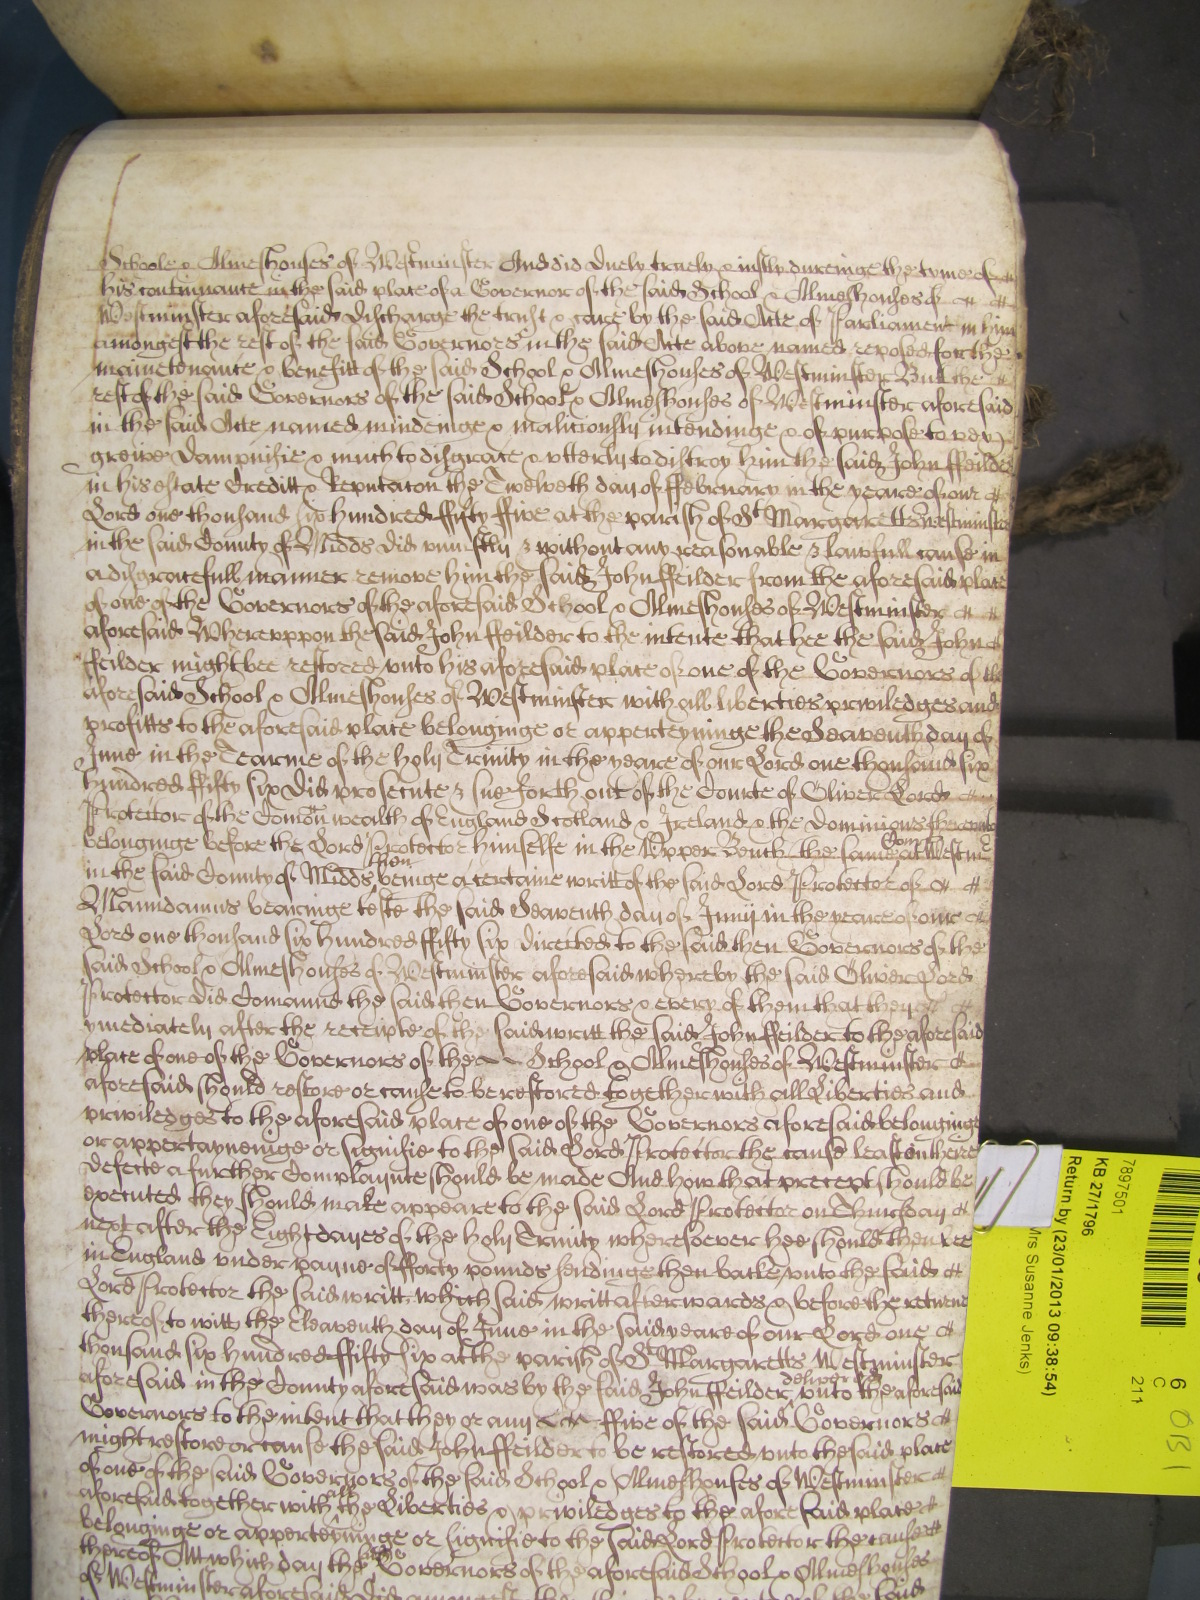 Schoole & Almeshouses of Westminster And did duely truely & iustly dureinge the tyme of
his continuance in the said place of a Governor of the said School & Almeshouses of
Westminster aforesaid discharge the trust & care by the said Acte of Parliament in him
amongest the rest of the said Governors in the said Acte above named reposed for the
mainetenance & benefitt of the said School & Almeshouses of Westminster But the
rest of the said Governors of the said School & Almeshouses of Westminster aforesaid
in the said Acte named mindeinge & malitiously intendinge & of purpose to vex
greive dampnifie & much to disgrace & vtterly to distroy him the said John ffeilder
in his estate Creditt & Reputacon the Twelveth day of ffebruary in the yeare of our
Lord one thousand six hundred ffifty ffive at the parish of St Margaretts Westminster
in the said County of Midds did vniustly & without any reasonable & lawfull cause in
a disgracefull manner remove him the said John ffeilder from the aforesaid place
of one of the Governors of the aforesaid School & Almeshouses of Westminster
aforesaid Wherevppon the said John ffeilder to the intente that hee the said John
ffeilder might bee restored vnto his aforesaid place of one of the Governors of the
aforesaid School & Almeshouses of Westminster with all liberties priviledges and
profitts to the aforesaid place belonginge or apperteyninge the Seaventh day of
June in the Tearme of the holy Trinity in the yeare of our Lord one thousand six
hundred ffifty six did prosecute & sue forth out of the Courte of Oliver Lord
Protector of the Comon wealth of England Scotland & Ireland & the Dominions therevnto
belonginge before the Lord Protector himselfe in the Vpper Bench the same Court at Westmr
in the said County of Midds then beinge a certaine writt of the said Lord Protector of
Manndamus bearinge teste the said Seaventh day of Junij in the yeare of our
Lord one thousand six hundred ffifty six directed to the said then Governors of the
said School & Almeshouses of Westminster aforesaid whereby the said Oliver Lord
Protector did Comannd the said then Governors & every of them that they
ymediately after the receipte of the said writt the said John ffeilder to the aforesaid
place of one of the Governors of the School & Almeshouses of Westminster
aforesaid should restore or cause to be restored together with all Liberties and
priviledges to the aforesaid place of one of the Governors aforesaid belonginge
or appertayneinge or signifie to the said Lord Protector the cause least in there
defecte a further Complaynte should be made And how that precept should be
executed they should make appeare to the said Lord Protector on Thursday
next after the Eight dayes of the holy Trinity wheresoever hee should then bee
in England vnder payne of fforty pounds sendinge then backe vnto the said
Lord Protector the said writt which said writt afterwards & before the returne
thereof to witt the Eleaventh day of June in the said yeare of our Lord one
thousand six hundred ffifty six at the parish of St Margaretts Westminster
aforesaid in the County aforesaid was by the said John ffeilder delivered vnto the aforesaid
Governors to the intent that they or any ffive of the said Governors
might restore or cause the said John ffeilder to be restored vnto the said place
of one of the said Governors of the said School & Almeshouses of Westminster
aforesaid together with all the Liberties & priviledges to the afore said place
belonginge or apperteyninge or signifie to the said Lord Protector the cause
thereof Att which day the said Governors of the aforesaid School & Almeshouses
of Westminster aforesaid Did
7897501
KB 27/1796
Return by (23/01/2013 09:38:54)
Mrs Susanne Jenks)
6
C
211